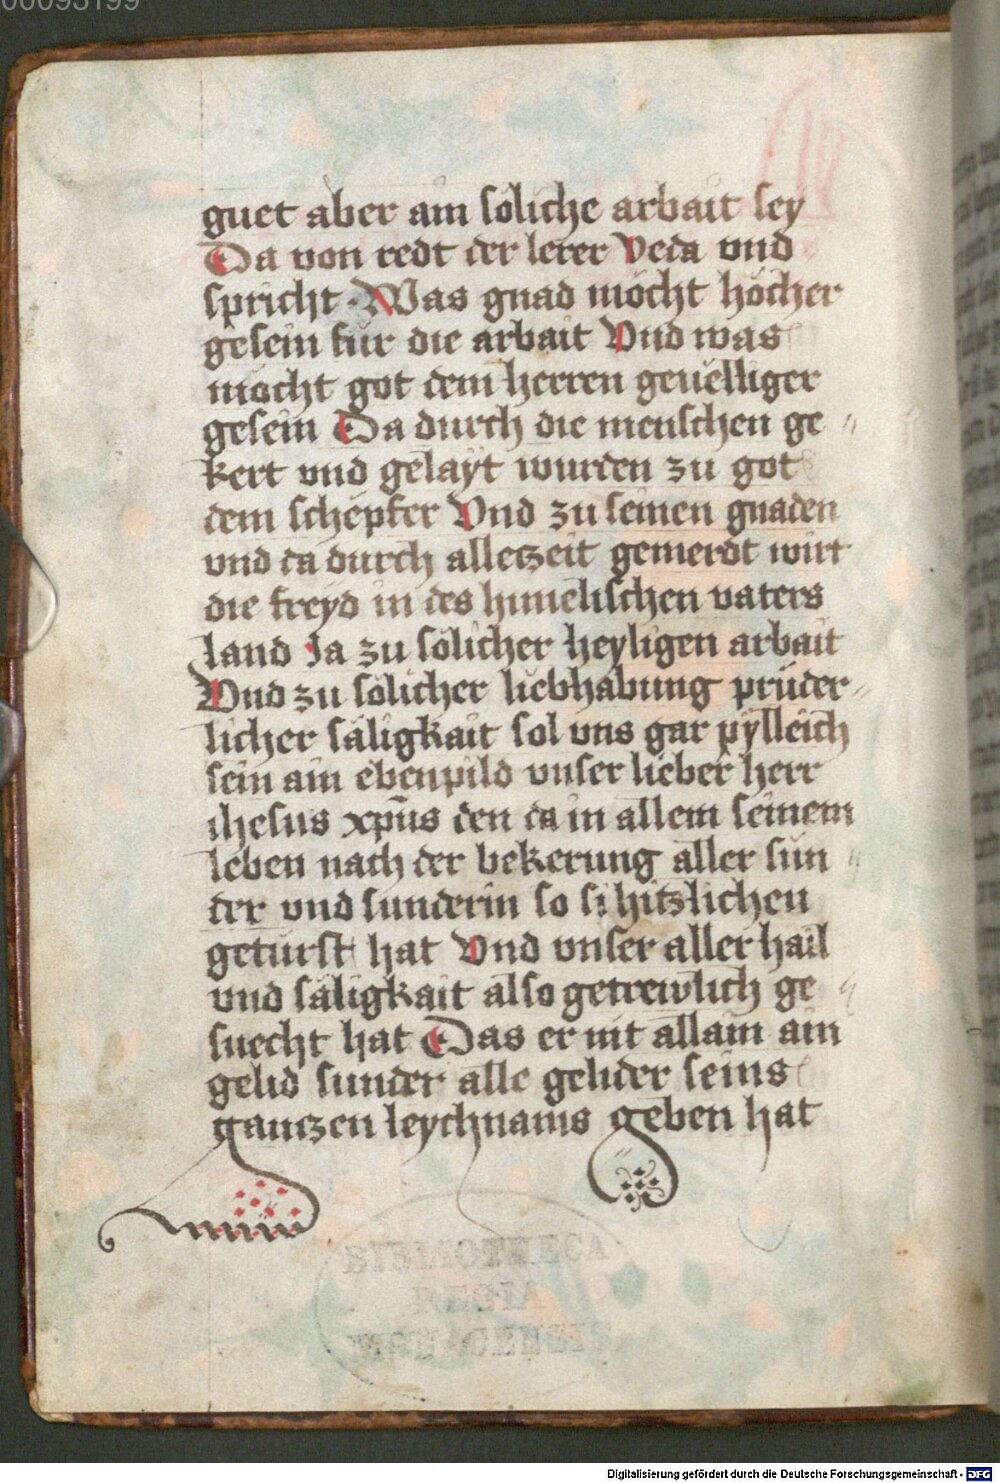 00093199
guet aber ain söliche arbait sey
Da von redt der lerer Veda vnd
spricht · Was gnad möcht höcher
gesein für die arbait Vnd was
möcht got dem herren geuelliger
gesein Da durch die menschen ge〃
kert vnd gelayt wurden zu got
dem schepfer Vnd zu seinen gnaden
vnd da durch alletzeit gemerdt wirt
die freyd in des himelischen vaters
land Ja zu sölicher heyligen arbait
Vnd zu sölicher liebhabung prüder〃
licher säligkait sol vns gar pylleich
sein ain ebenpild vnser lieber herr
ihesus xp̄us den da in allem seinem
leben nach der bekerung aller sün〃
der vnd sunderin so si hitzlichen
geturst hat Vnd vnser aller hail
vnd säligkait also getrewlich ge〃
suecht hat Das er nit allain ain
gelid sunder alle gelider seins
gantzen leychnams geben hat
BIBLIOTHECA
REGIA
MONACENSIS
Digitalisierung gefördert durch die Deutsche Forschungsgemeinschaft - DFG